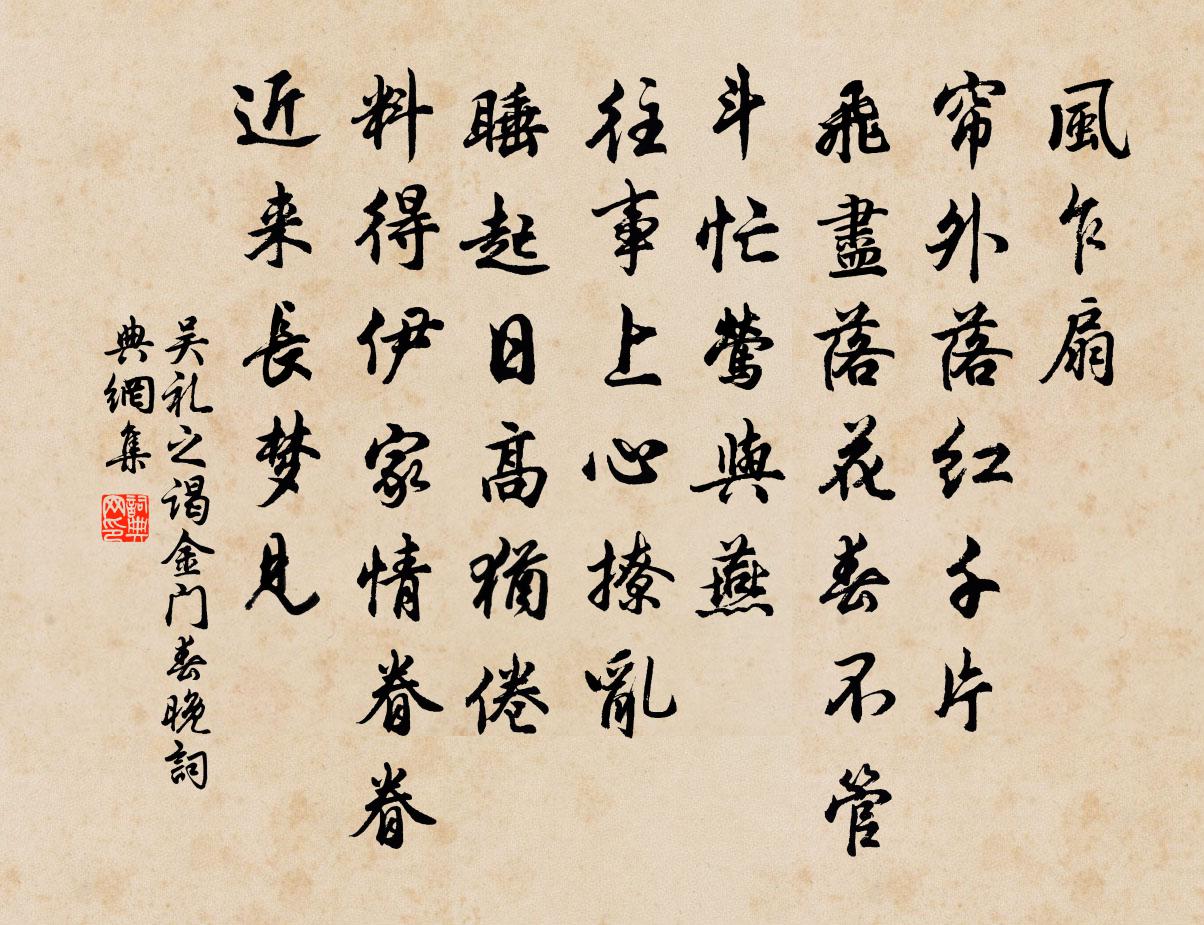 風乍扇
帘外落红千片
飛盡落花春不管
斗忙鶯與燕
往事上心撩亂
睡起日高猶倦
料得伊家情眷眷
近来長梦見
吴礼之谒金门春晚詞
典網集
詞典网印